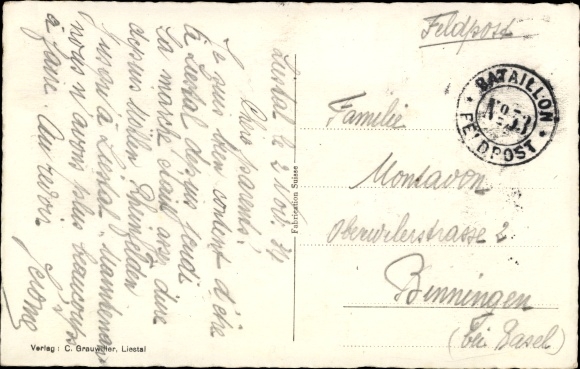 Liestal le 2 Nov. 34
Chers parents!
Je suis bien content d'être
à Liestal depuis jeudi
La marche était assez dure
depuis Möhlin, Rheinfelden
jusqu'à Liestal. Maintenant
nous n'avons plus beaucoup
à faire. Au revoir
Jerome
Verlag : C. Grauwiller, Liestal
Fabrication Suisse
Feldpost
BATAILLON
No 53
FELDPOST
Familie
Montavon
Oberwilerstrasse 2
Binningen
(bei Basel)